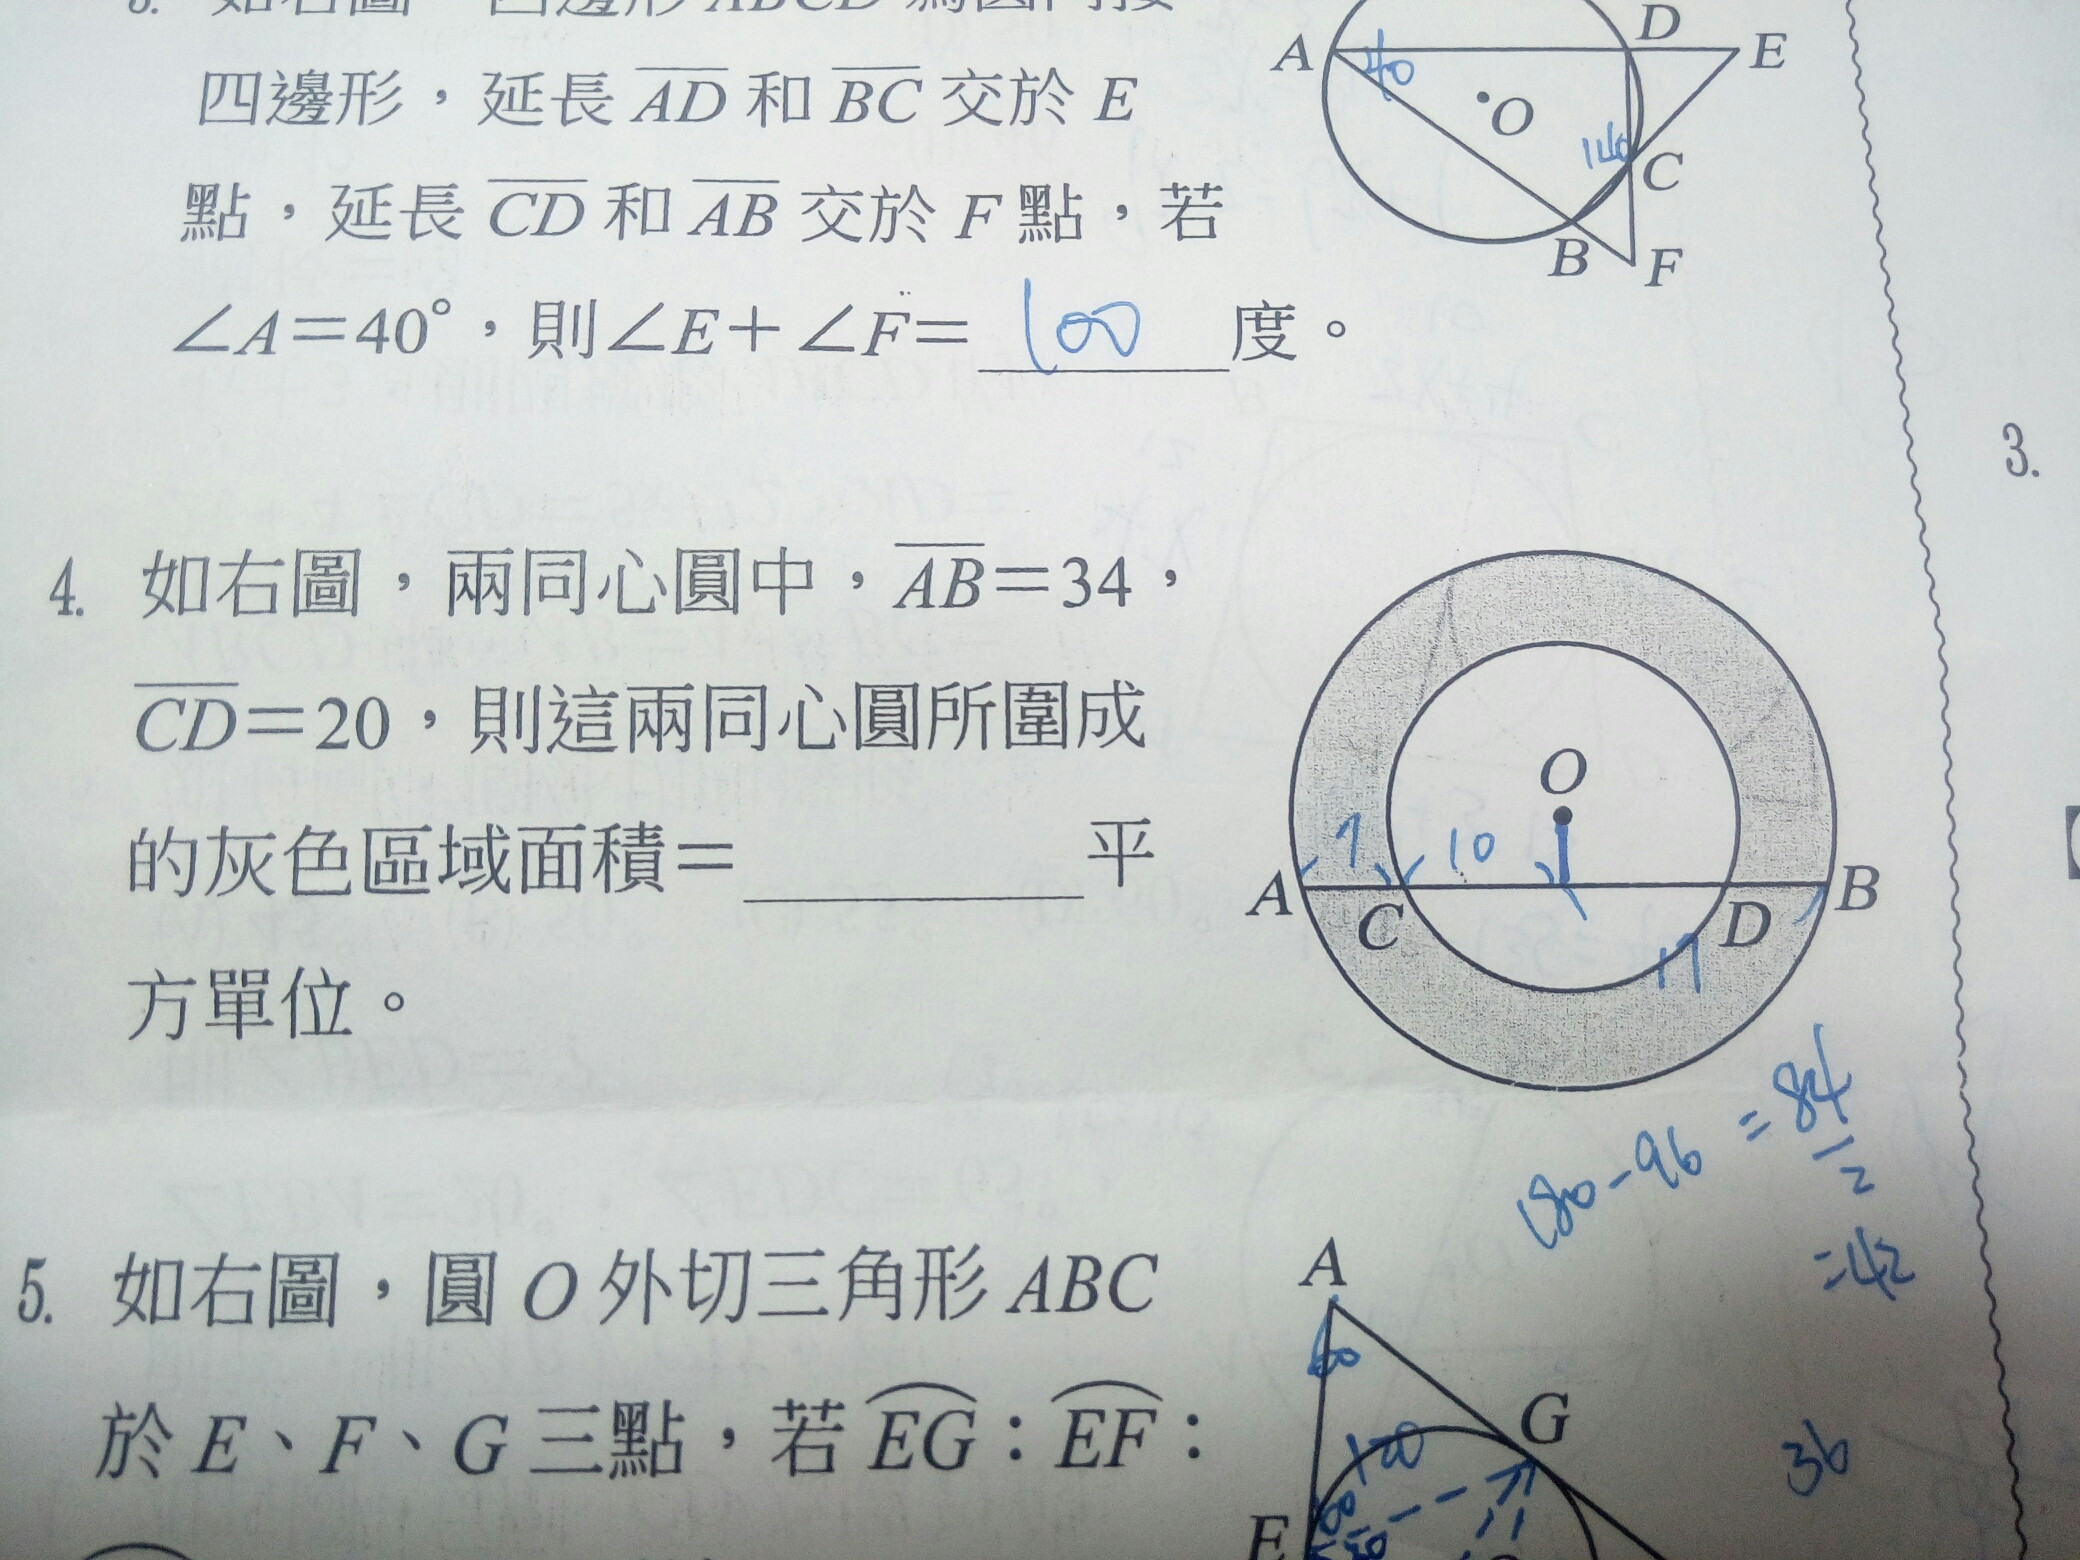 四邊形,延長 AD 和 BC 交於 E
點,延長 CD 和 AB 交於 F 點,若
∠A=40°,則∠E+∠F= 100 度。
A
D
E
40
O
140
C
B
F
3.
4. 如右圖,兩同心圓中,AB=34,
CD=20,則這兩同心圓所圍成
的灰色區域面積=________平
方單位。
O
7
10
A
C
D
B
17
180-96=84
2
=42
5. 如右圖,圓 O 外切三角形 ABC
於 E、F、G 三點,若 EG:EF:
A
60
G
120
E
36